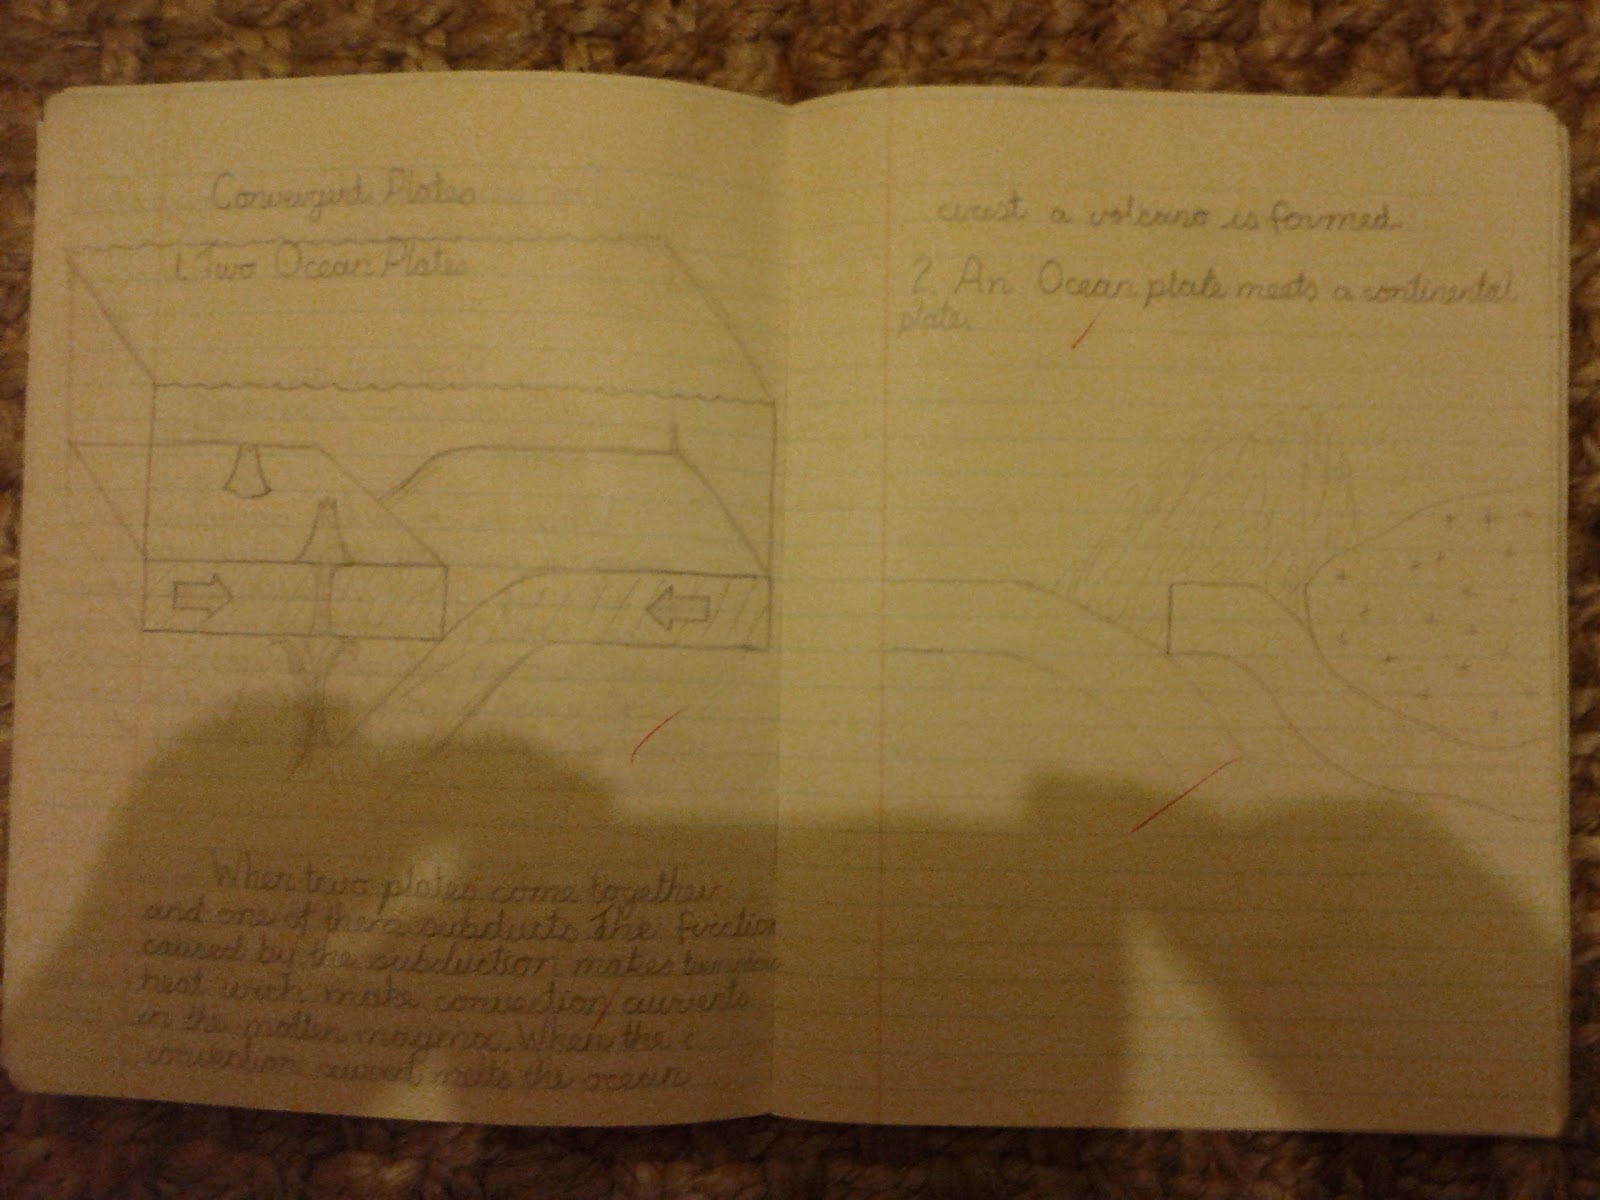 Converged Plates
1. Two Ocean Plates
When two plates come together
and one of them subducts the friction
caused by the subduction makes
heat wich make convection currents
in the molten magma. When the c
convection curent melts the ocean
crust a volcano is formed
2. An Ocean plate meets a continental
plate.